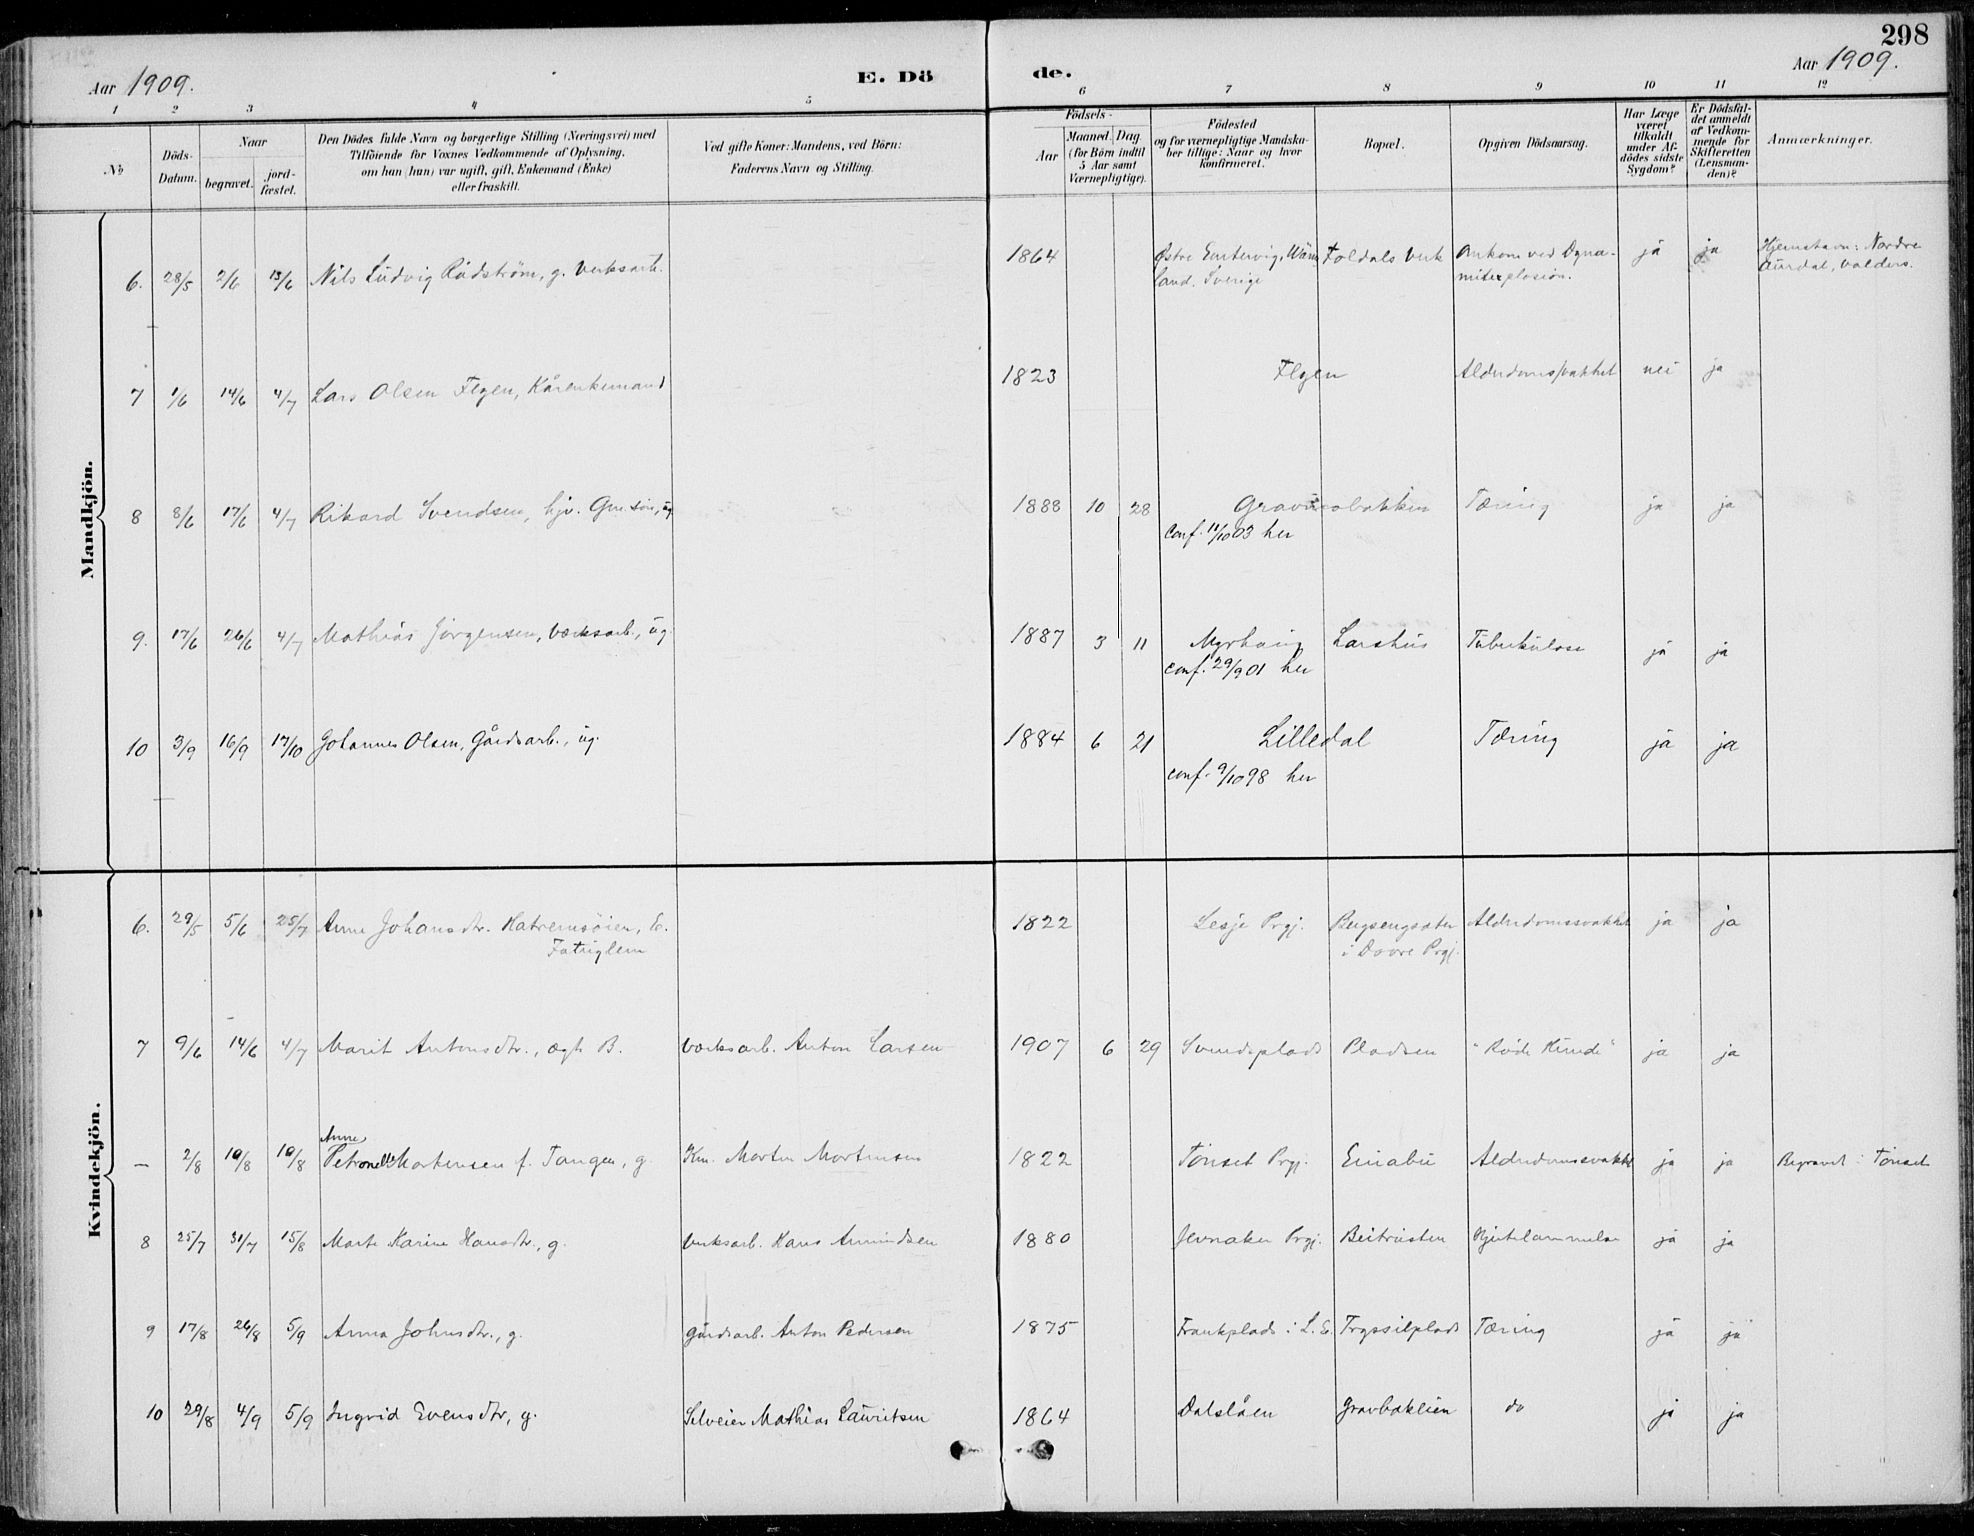 298
Aar 1909.
E. Dö
de.
Aar 1909.
1 2 3 4 5 6 7 8 9 10 11 12
No
Döds-
Datum.
Naar
begravet.
jord-
fæstet.
Den Dödes fulde Navn og borgerlige Stilling (Næringsvei) med
Tilföiende for Voxnes Vedkommende af Oplysning,
om han (hun) var ugift, gift, Enkemand (Enke)
eller fraskilt.
Ved gifte Koner: Mandens, ved Börn:
Faderens Navn og Stilling.
Födsels-
Aar
Maaned. Dag.
(for Börn indtil
5 Aar samt
Værnepligtige).
Födested
og for værnepligtige Mandska-
ber tillige: Naar og hvor
konfirmeret.
Bopæl.
Opgiven Dödsaarsag.
Har Læge
været
tilkaldt
under Af-
dödes sidste
Sygdom?
Er Dödsfal-
det anmeldt
af Vedkom-
mende for
Skifteretten
(Lensman-
den)?
Anmærkninger.
Mandkjön.
6. 28/5 2/6 13/6 Nils Ludvig Rådström, g. Verksarb. 1864 Østre Emtervig, Wärm- Foldals Verk Omkom ved Dyna- ja ja Hjemstavn: Nordre
land. Sverige mitexplosion. Aurdal, Valders.
7 1/6 14/6 4/7 Lars Olsen Flgen, Kårenkemand 1823 Flgen Alderdomssvakhet nei ja
8 8/6 17/6 4/7 Rikard Svendsen, hjv. Grn. søn, ug 1888 10 28 Gravbakken Tæring ja ja
conf. 11/10 03 her
9. 17/6 26/6 4/7 Mathias Jørgensen, Verksarb., ug. 1887 3 11 Myrhaug Larshus Tuberkulose ja ja
conf. 29/9 01 her
10 3/9 16/9 17/10 Johannes Olsen, Gårdsarb., ug. 1884 6 21 Lilledal Tæring ja ja
conf. 9/10 98 her
Kvindekjön.
6. 29/5 5/6 25/7 Anne Johansdtr. E. 1822 Lesje Prgj. Alderdomssvakhet ja ja
Fattiglem i Dovre Prgj.
7 9/6 14/6 4/7 Marit Antonsdtr., ægte B. Verksarb. Anton Larsen 1907 6 29 Svendsplads Pladsen "Røde Hunde" ja ja
Anne
— 2/8 10/8 10/8 Petronelle Mortensen f. Tangen, g. Km. Morten Mortensen 1822 Tønset Prgj. Einabu Alderdomssvakhet ja ja Begravet i Tønset
8 25/7 31/7 15/8 Marte Karine Hansdtr., g. Verksarb. Hans Amundsen 1880 Jevnaker Prgj. Hjertelammelse ja ja
9 17/8 26/8 5/9 Anna Johnsdtr., g. gårdsarb. Anton Pedersen 1875 Frankplads i L. E. Tryssilplads Tæring ja ja
10 29/8 4/9 5/9 Ingrid Evensdtr, g. Selveier Mathias Lauritsen 1864 Dalslåen Gravbakleien do ja ja